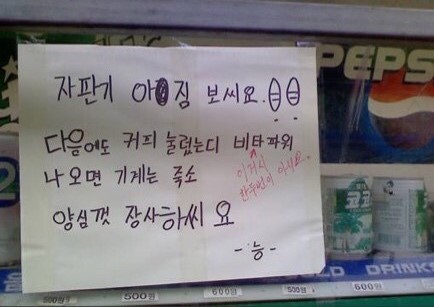 자판기 아짐 보씨요.
PEPS
다음에도 커피 눌렀는디 비타파워
이러시
나 오면 기계는 죽소
한두번이 아녀요..
양심껏 장사하씨 요
-능-
코코
500원
500원
600원
500원
600원
COLD DRINKS